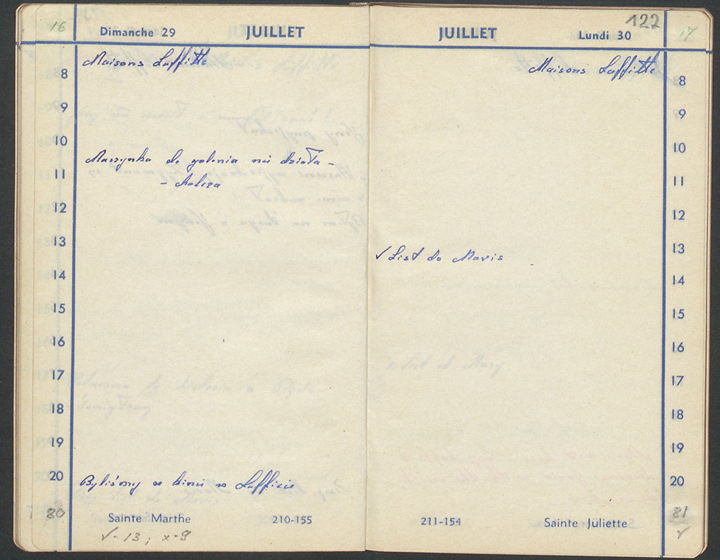 16
Dimanche 29 JUILLET
8
Maisons Laffitte
9
10
Maszynka do golenia nie działa -
11
12
13
14
15
16
17
18
19
20
Byliśmy w kinie w Lafficie
80
Sainte Marthe 210-155
√-13; x-9
122
JUILLET Lundi 30
17
Maisons Laffitte
8
9
10
11
12
13
√ List do
14
15
16
17
18
19
20
81
211-154 Sainte Juliette
√